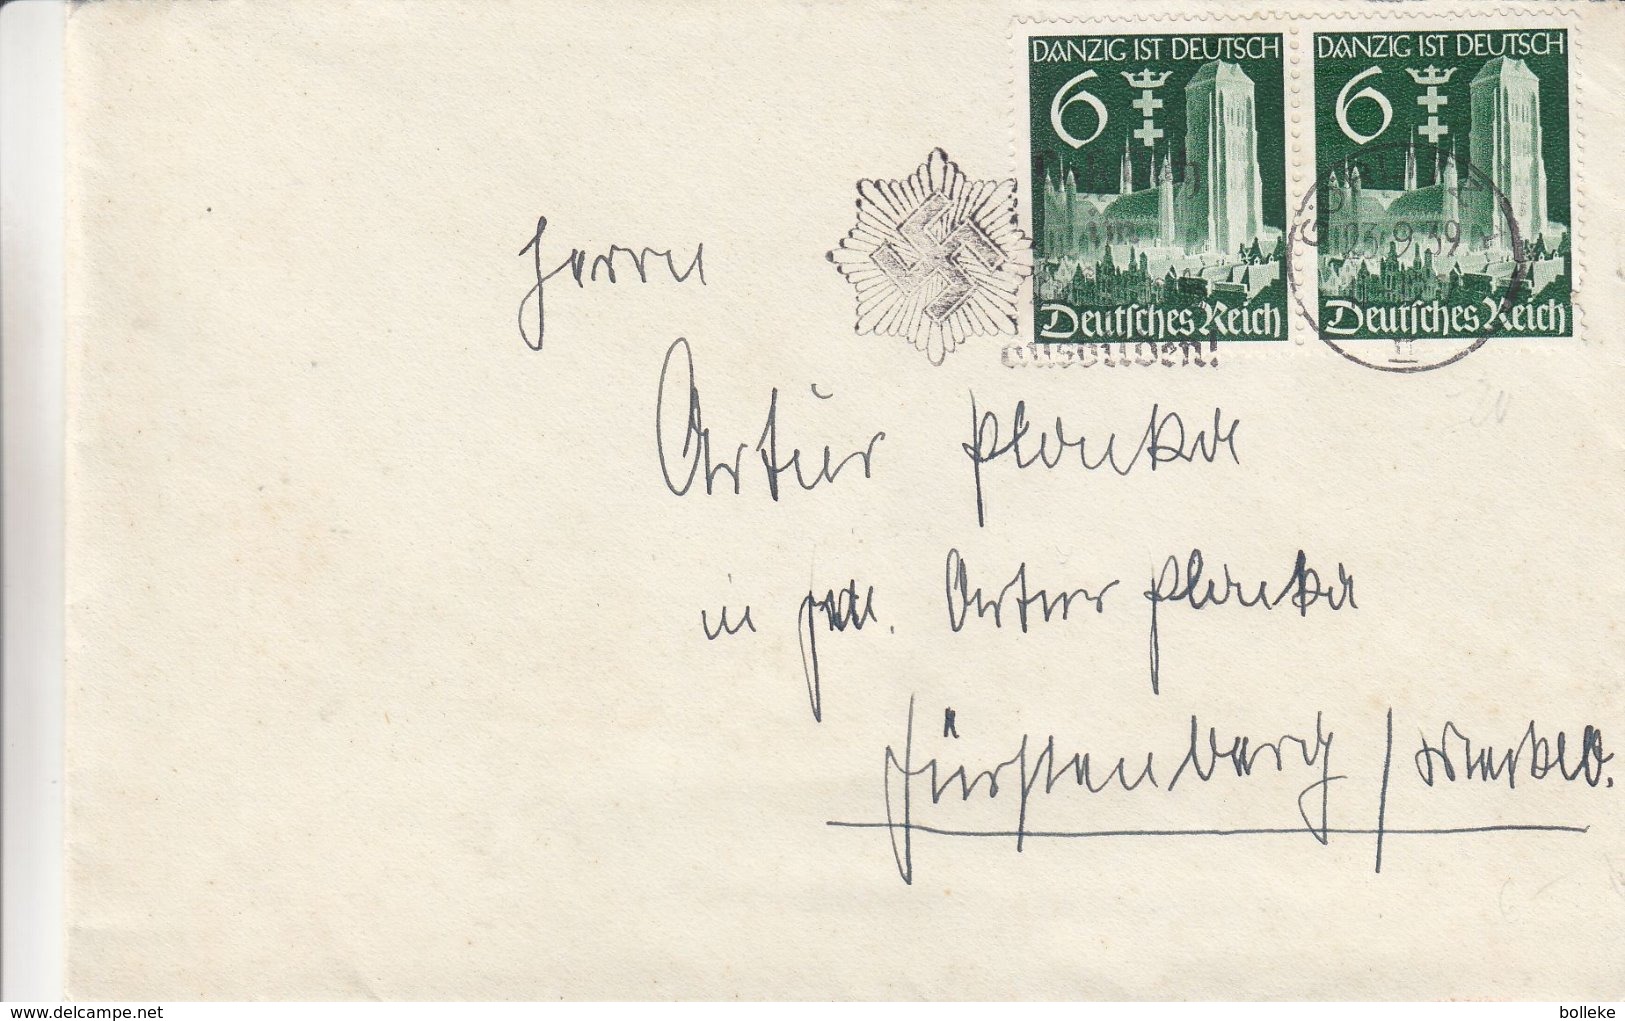 DANZIG IST DEUTSCH
6
Deutsches Reich
DANZIG IST DEUTSCH
6
Deutsches Reich
23.9.39
ausbilden!
Herrn
Artur Plonka
in Fa. Artur Plonka
Fürstenberg / Meckl.
delcampe.net
bolleke